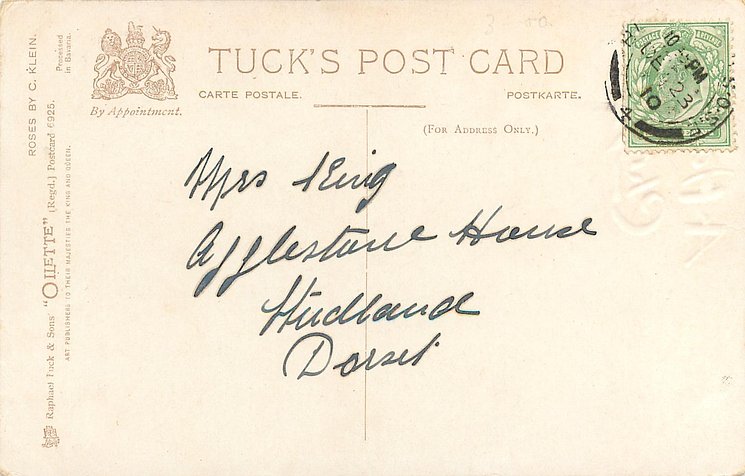 TUCK'S POST CARD
CARTE POSTALE.
POSTKARTE.
(FOR ADDRESS ONLY.)
By Appointment.
ROSES BY C. KLEIN.
Processed
in Bavaria.
Raphael Tuck & Sons' "OILETTE" (Regd.) Postcard 6925.
ART PUBLISHERS TO THEIR MAJESTIES THE KING AND QUEEN.
10 PM
DE 23
10
4
Mrs King
Agglestone House
Studland
Dorset